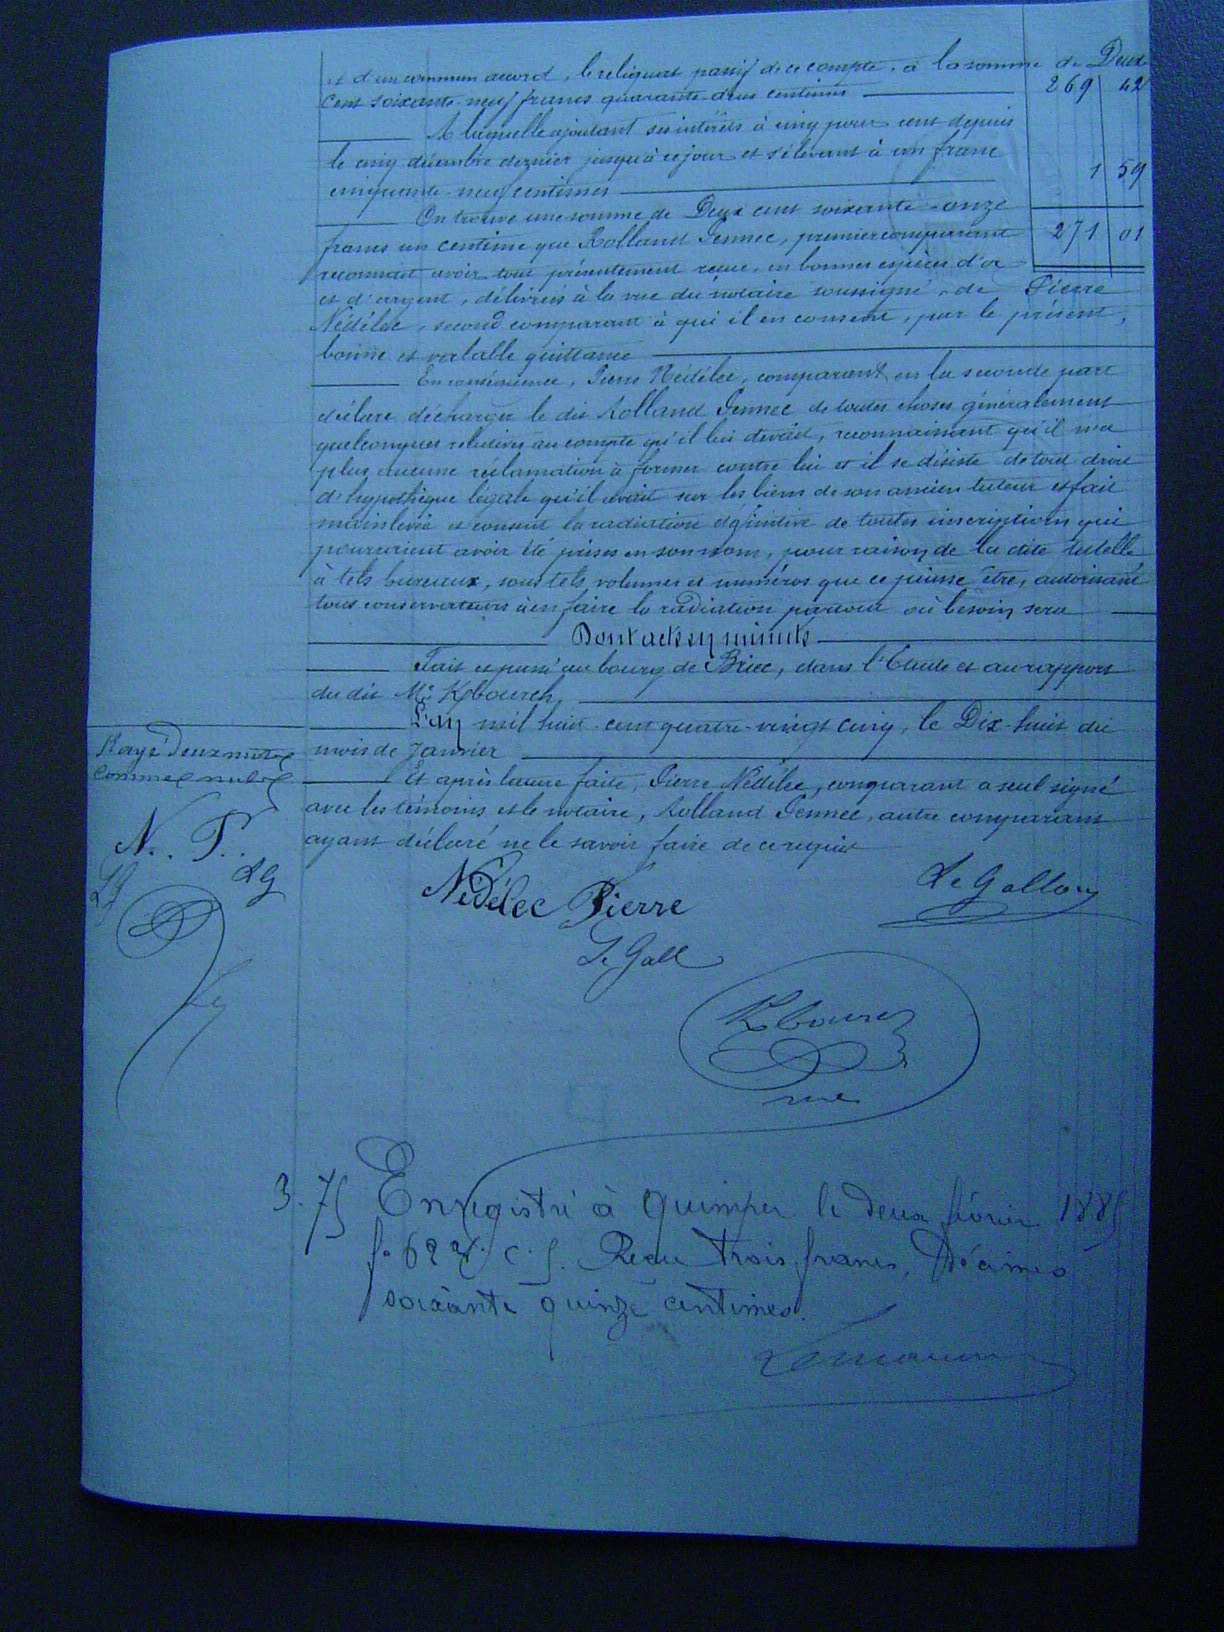 et d'un commun accord, le reliquat passif de ce compte, à la somme de Deux
cent soixante-neuf francs quarante-deux centimes 269 42
A laquelle ajoutant ses intérêts à cinq pour cent depuis
le cinq décembre dernier jusqu'à ce jour et s'élevant à un franc
cinquante-neuf centimes 1 59
On trouve une somme de Deux cent soixante-onze
francs un centime que Rolland Gennec, premier comparant 271 01
reconnait avoir tout présentement reçue, en bonnes espèces d'or
et d'argent, délivrés à la vue du notaire soussigné, de Pierre
Nédélec, second comparant à qui il en consent, par le présent,
bonne et valable quittance
En conséquence, Pierre Nédélec, comparant en la seconde part
déclare décharger le dit Rolland Gennec de toutes choses généralement
quelconques relatives au compte qu'il lui devait, reconnaissant qu'il n'a
plus aucune réclamation à former contre lui et il se désiste de tout droit
d'hypothèque légale qu'il avait sur les biens de son ancien tuteur et fait
mainlevée et consent la radiation définitive de toutes inscriptions qui
pourraient avoir été prises en son nom, pour raison de la dite tutelle
à tels bureaux, sous tels volumes et numéros que ce puisse être, autorisant
tous conservateurs à en faire la radiation partout où besoin sera
Dont acte en minute
Fait et passé au bourg de Briec, dans l'Etude et au rapport
du dit Me Kbourch,
L'an mil huit-cent-quatre-vingt-cinq, le Dix-huit du
mois de Janvier
Et après lecture faite, Pierre Nédélec, comparant a seul signé
avec les témoins et le notaire, Rolland Gennec, autre comparant
ayant déclaré ne le savoir faire de ce requis
Rayé deux mots
comme nuls
N. P.
LG
Nédélec Pierre
Le Gallou
Le Gall
Kbourch
3.75 Enregistré à Quimper le deux février 1885
f° 62 v. c. 5. Reçu trois francs, Décimes
soixante quinze centimes.